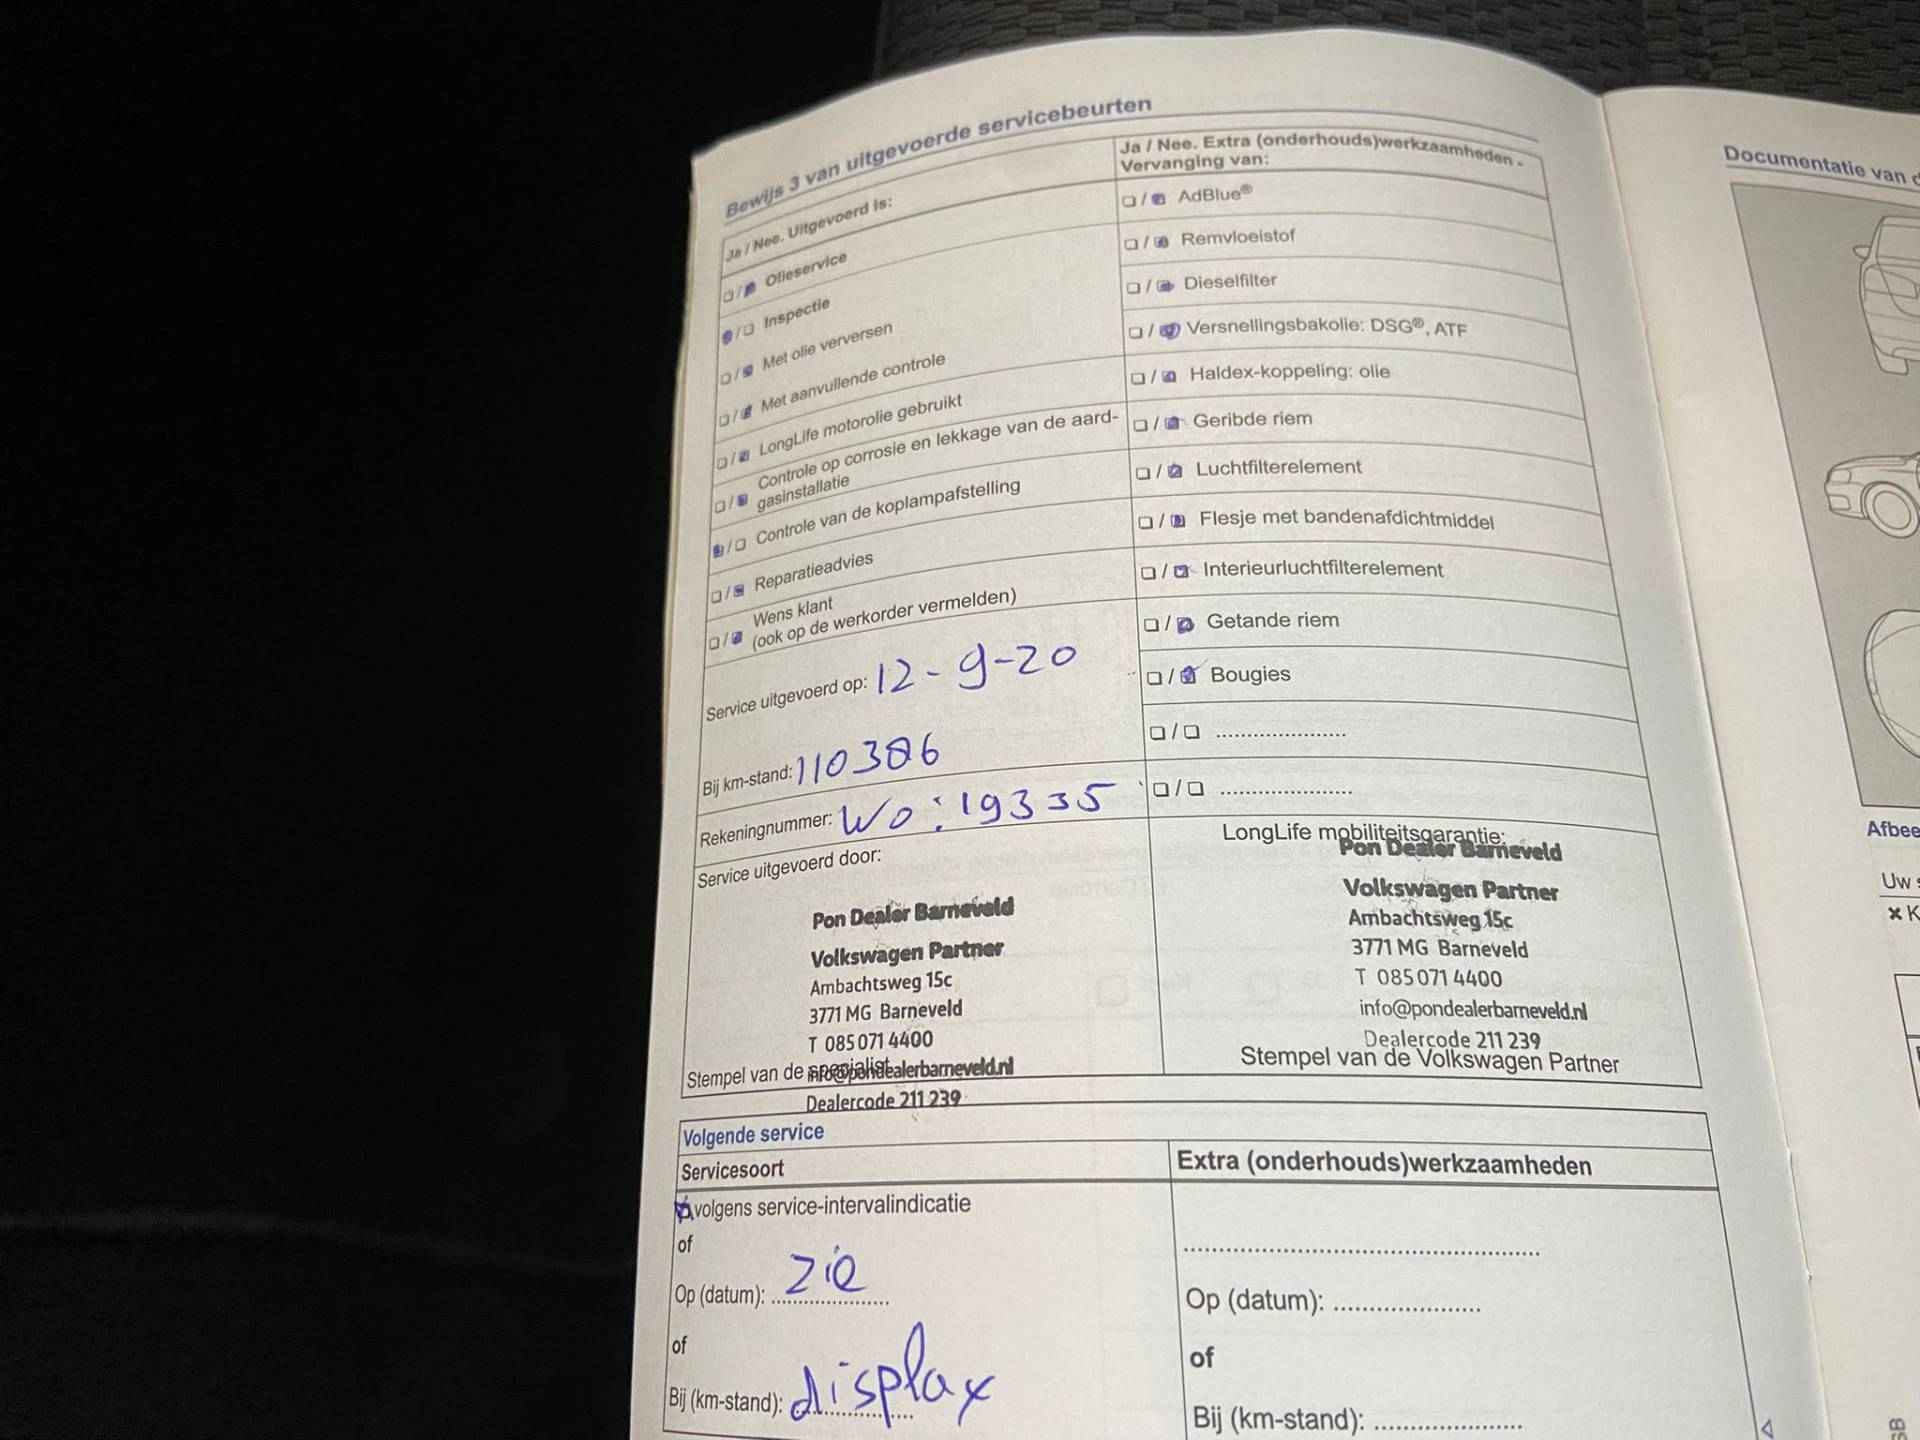 Bewijs 3 van uitgevoerde servicebeurten
Ja / Nee. Uitgevoerd is:
Olieservice
Inspectie
Met olie verversen
Met aanvullende controle
LongLife motorolie gebruikt
Controle op corrosie en lekkage van de aard-
gasinstallatie
Controle van de koplampafstelling
Reparatieadvies
Wens klant
(ook op de werkorder vermelden)
Service uitgevoerd op: 12-9-20
Bij km-stand: 110386
Rekeningnummer: Wo: 19335
Service uitgevoerd door:
Pon Dealer Barneveld
Volkswagen Partner
Ambachtsweg 15c
3771 MG Barneveld
T 085 071 4400
Stempel van de specialist
info@pondealerbarneveld.nl
Dealercode 211 239
Ja / Nee. Extra (onderhouds)werkzaamheden -
Vervanging van:
AdBlue®
Remvloeistof
Dieselfilter
Versnellingsbakolie: DSG®, ATF
Haldex-koppeling: olie
Geribde riem
Luchtfilterelement
Flesje met bandenafdichtmiddel
Interieurluchtfilterelement
Getande riem
Bougies
LongLife mobiliteitsgarantie:
Pon Dealer Barneveld
Volkswagen Partner
Ambachtsweg 15c
3771 MG Barneveld
T 085 071 4400
info@pondealerbarneveld.nl
Dealercode 211 239
Stempel van de Volkswagen Partner
Volgende service
Servicesoort
volgens service-intervalindicatie
of
Op (datum): zie
of
Bij (km-stand): display
Extra (onderhouds)werkzaamheden
Op (datum):
of
Bij (km-stand):
Documentatie van
Uw